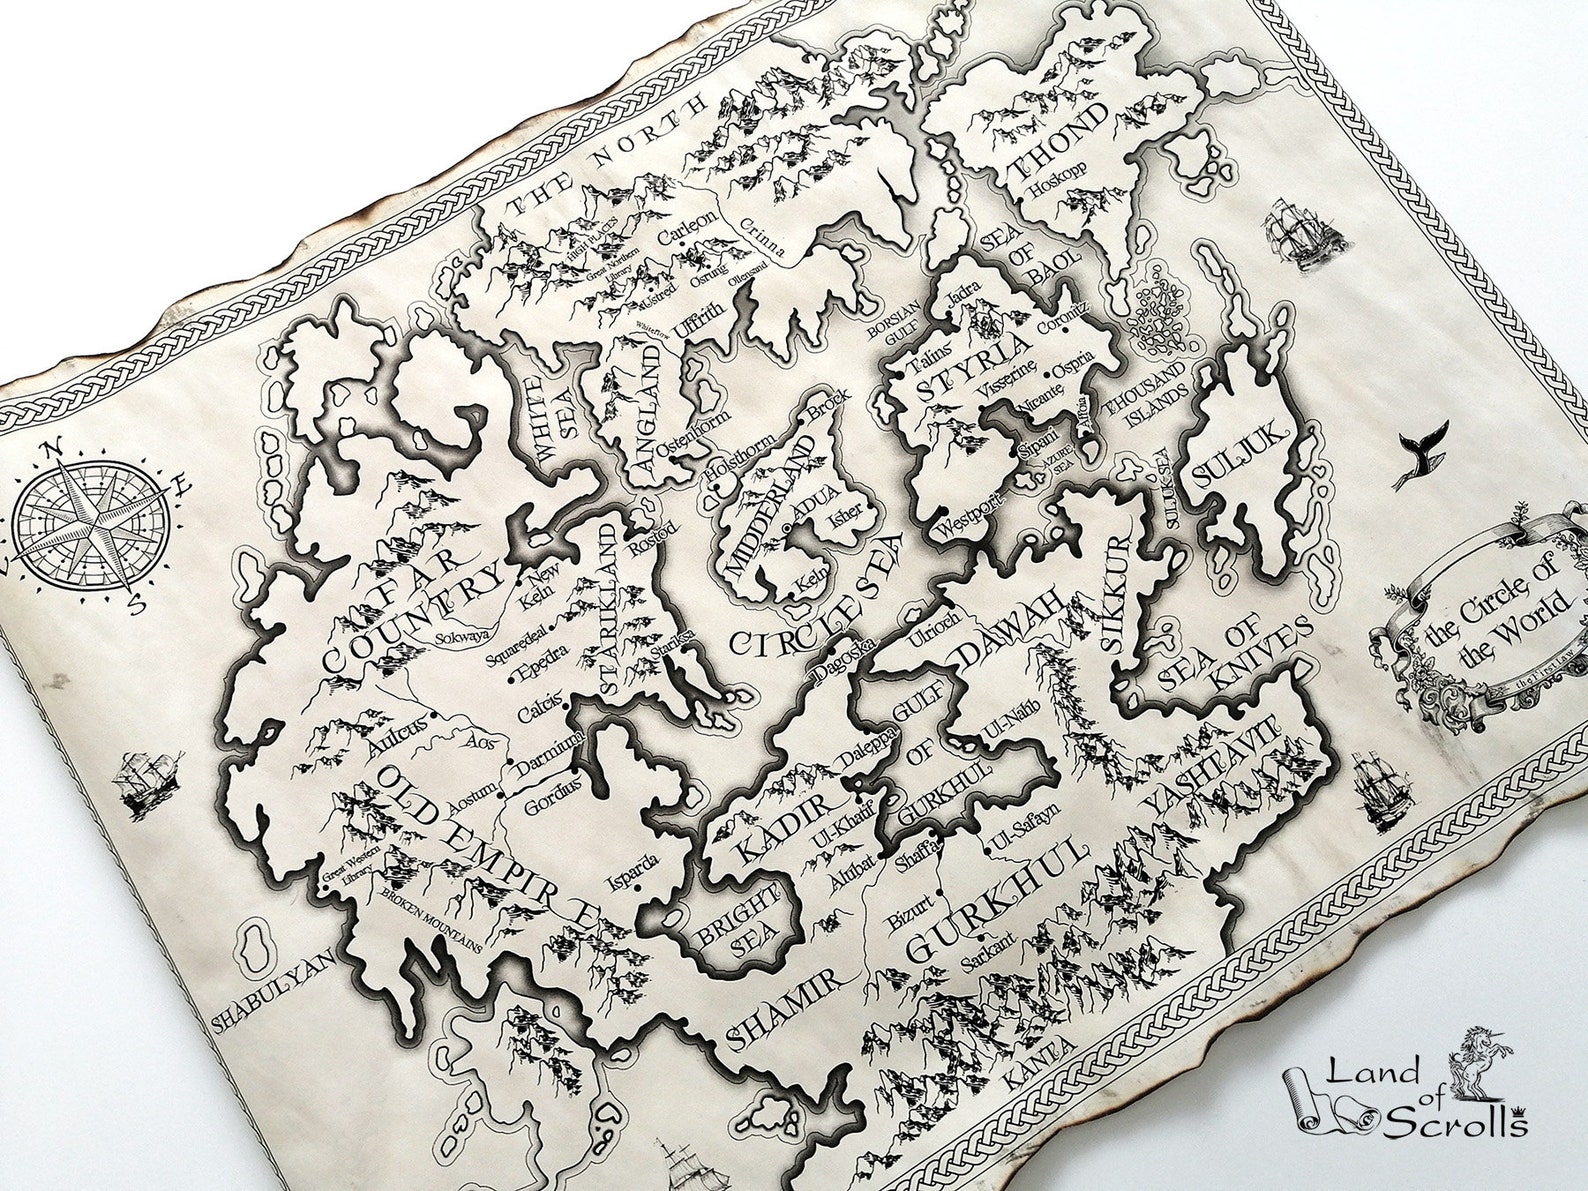 THE NORTH
HIGH PLACES
Great Northern
Library
Carleon
Crinna
Ustred
Osrung
Ollensand
Whiteflow
Uffrith
THOND
Hoskopp
SEA
OF
BAOL
BORSIAN
GULF
Jadra
Talins
STYRIA
Coronitz
Visserine
Ospria
Nicante
Affoia
Sipani
AZURE
SEA
Westport
THOUSAND
ISLANDS
SULJUK
SULJUK SEA
WHITE
SEA
ANGLAND
Ostenhorm
Holsthorm
Brock
MIDDERLAND
ADUA
Isher
Keln
CIRCLE SEA
N
E
S
FAR
COUNTRY
New
Keln
Rostod
STARIKLAND
Sokwaya
Squaredeal
Epedra
Stariksa
Calcis
Aulcus
Aos
Darmium
OLD EMPIRE
Aostum
Gordius
Great Western
Library
BROKEN MOUNTAINS
Isparda
SHABULYAN
Dagoska
Ulrioch
DAWAH
SIKKUR
SEA OF
KNIVES
GULF
OF
GURKHUL
Ul-Nahb
Daleppa
KADIR
Ul-Khatif
YASHTAVIT
Ul-Safayn
Shaffa
Altibat
GURKHUL
Bizurt
Sarkant
BRIGHT
SEA
SHAMIR
KANTA
the Circle of
the World
the First Law
Land
of
Scrolls